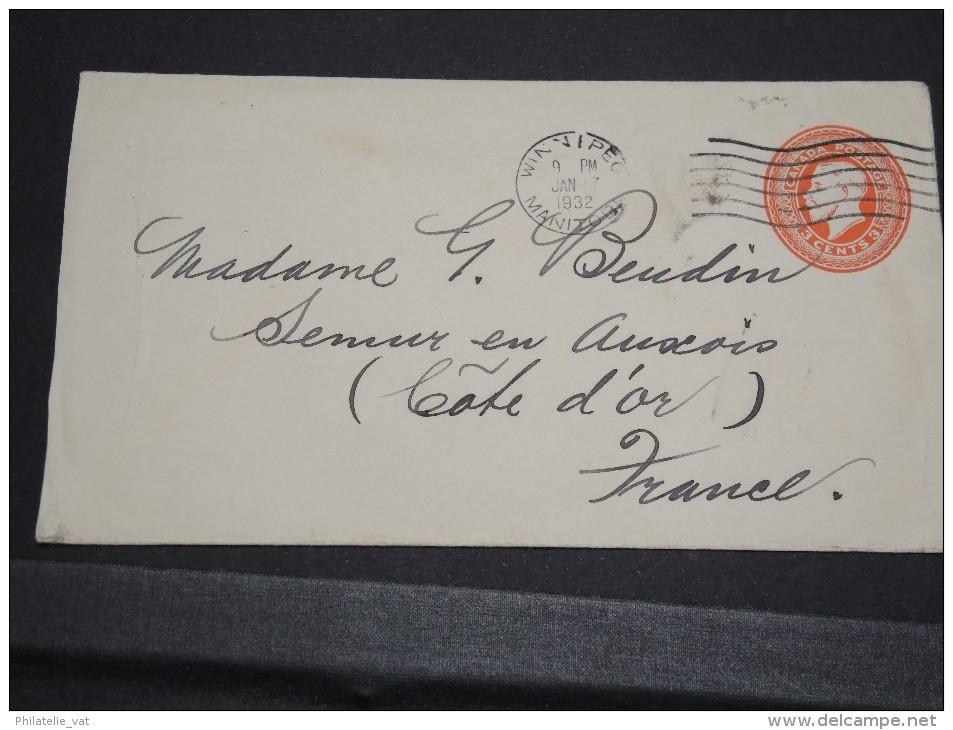 WINNIPEG
9 PM
JAN 17
1932
MANITOBA
CANADA POSTAGE
3 CENTS 3
Madame G. Beudin
Semur en Auxois
(Côte d'or)
France.
Philatelie_vat
www.delcampe.net